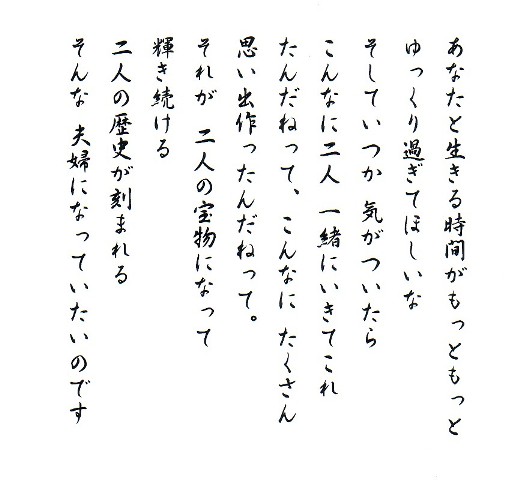 あなたと生きる時間がもっともっと
ゆっくり過ぎてほしいな
そしていつか 気がついたら
こんなに二人 一緒にいきてこれ
たんだねって、こんなに たくさん
思い出作ったんだねって。
それが 二人の宝物になって
輝き続ける
二人の歴史が刻まれる
そんな 夫婦になっていたいのです